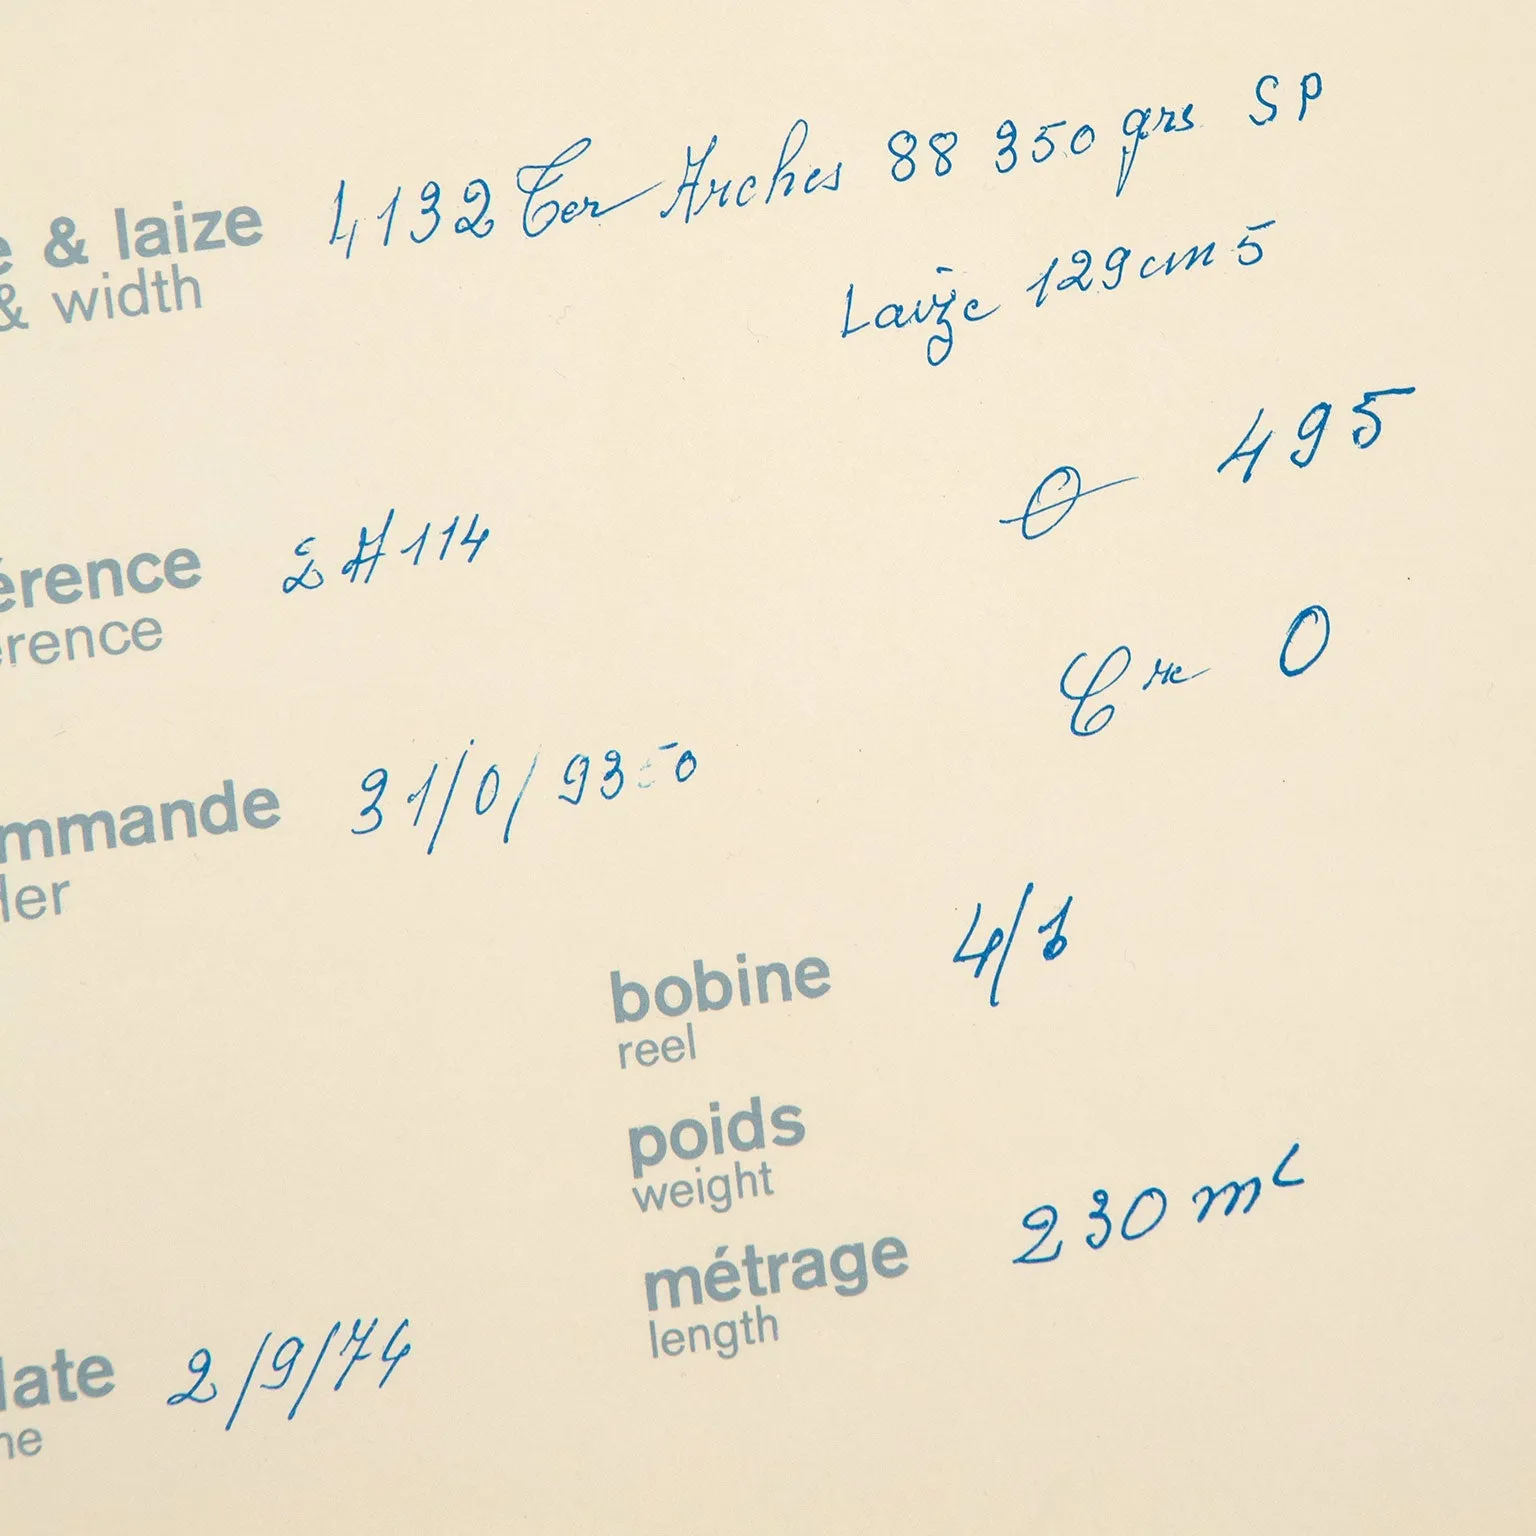 & laize 4132 Ter Arches 88 350 grs SP
& width
Laize 129cm5
495
érence 2 # 114
erence
Cre 0
mmande 31/0/9350
der
bobine 4/1
reel
poids
weight
métrage 230 ml
length
date 2/9/74